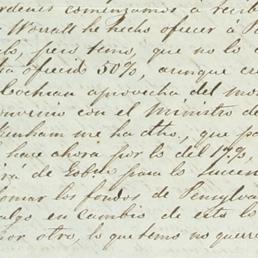 ordenes comenzamos a recib
Worrall he hecho ofrecer á
pero temo, que no lo
ofrecido 50%, aunque cre
aprovecha del mo
convino con el Ministro de
me ha dho, que pa
hace ahora por lo del 17%,
ra de Gobno para lo sucen
tomar los fondos de Pensylva
algo en cambio de esto lo
por otro, lo que temo no quer